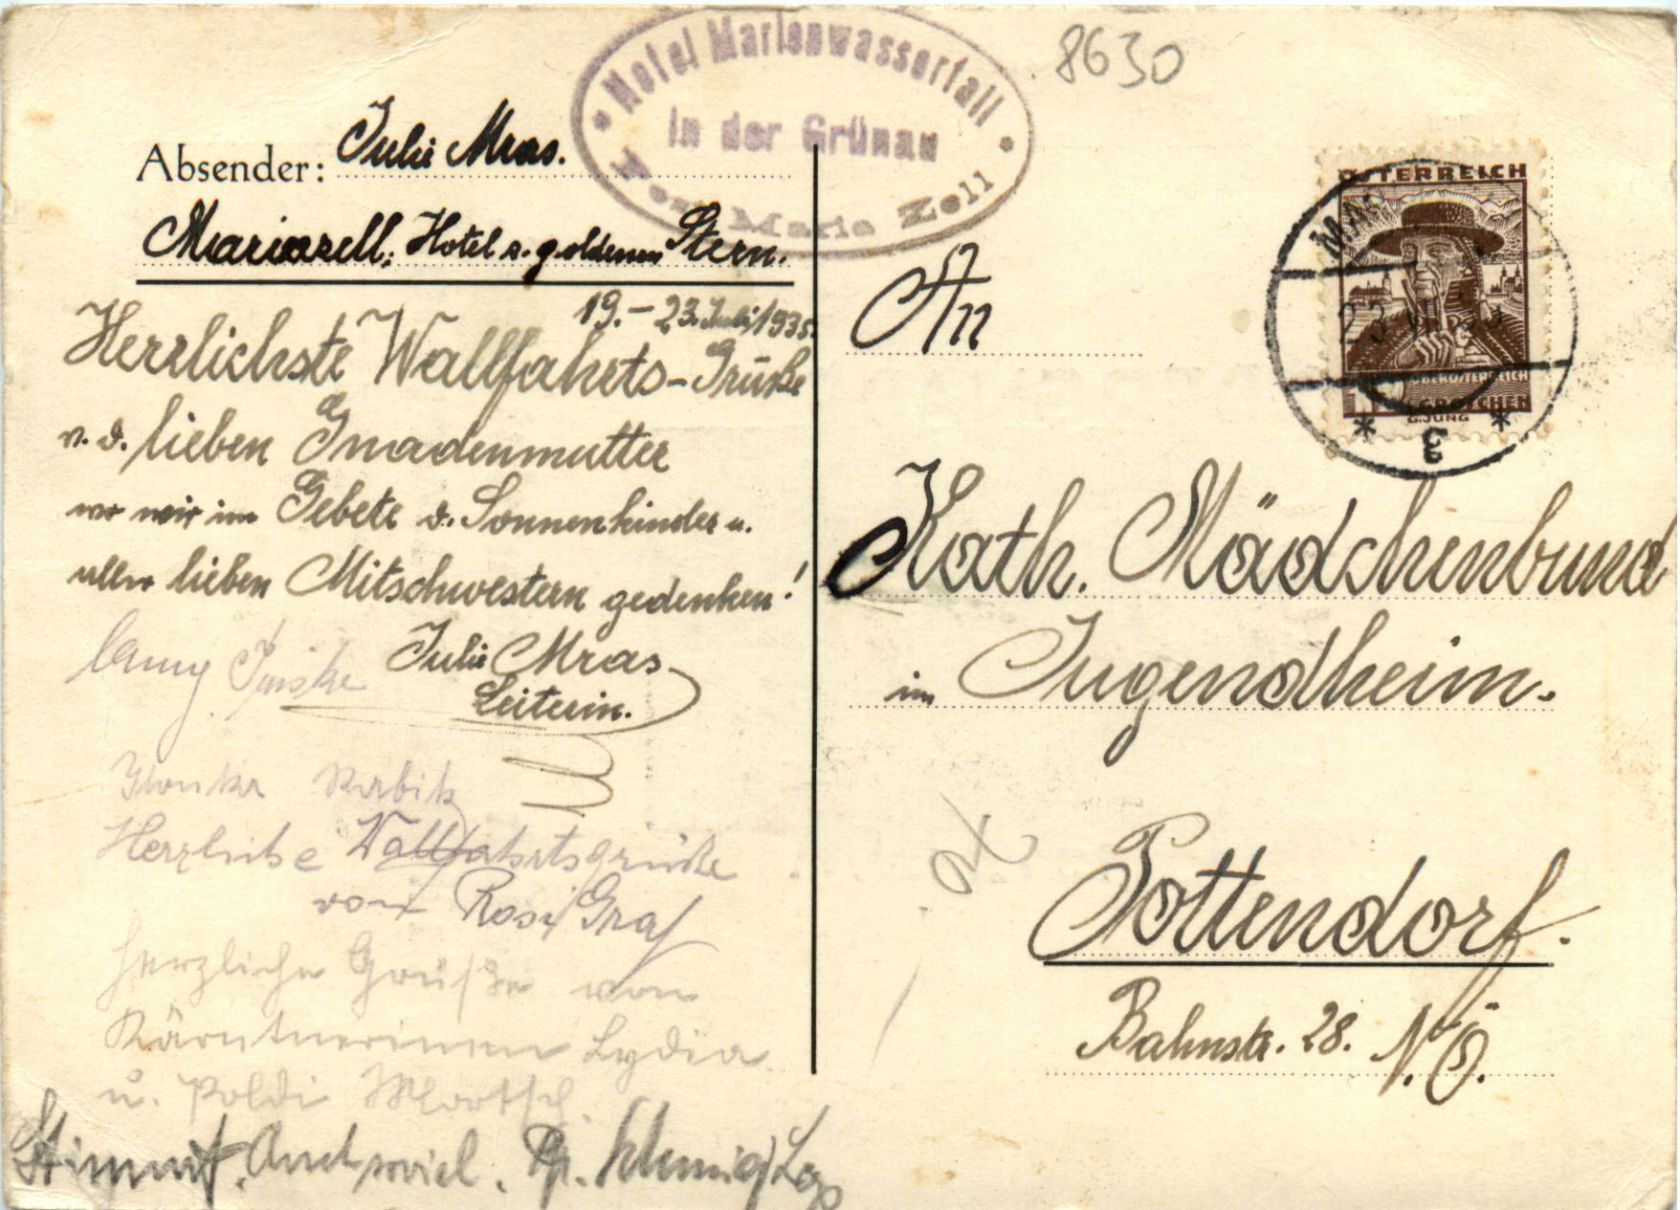 Hotel Marienwasserfall
in der Grünau
Post Maria Zell
8630
Absender: Julie Mras.
Mariazell, Hotel z. goldenen Stern.
19.-23. Juli 1935.
Herrlichste Wallfahrts-Grüße
v. d. lieben Gnadenmutter
wo wir im Gebete d. Sonnenkinder u.
aller lieben Mitschwestern gedenken!
Julie Mras
Leiterin.
Herzliche Wallfahrtsgrüße
von Rosi Graf
Herzliche Grüße von
Kärntnerinnen Lydia
u. Poldi
ÖSTERREICH
OBERÖSTERREICH
GROSCHEN
G.JUNG
An
Kath. Mädchenbund
im Jugendheim.
Pottendorf.
Bahnstr. 28. N.Ö.